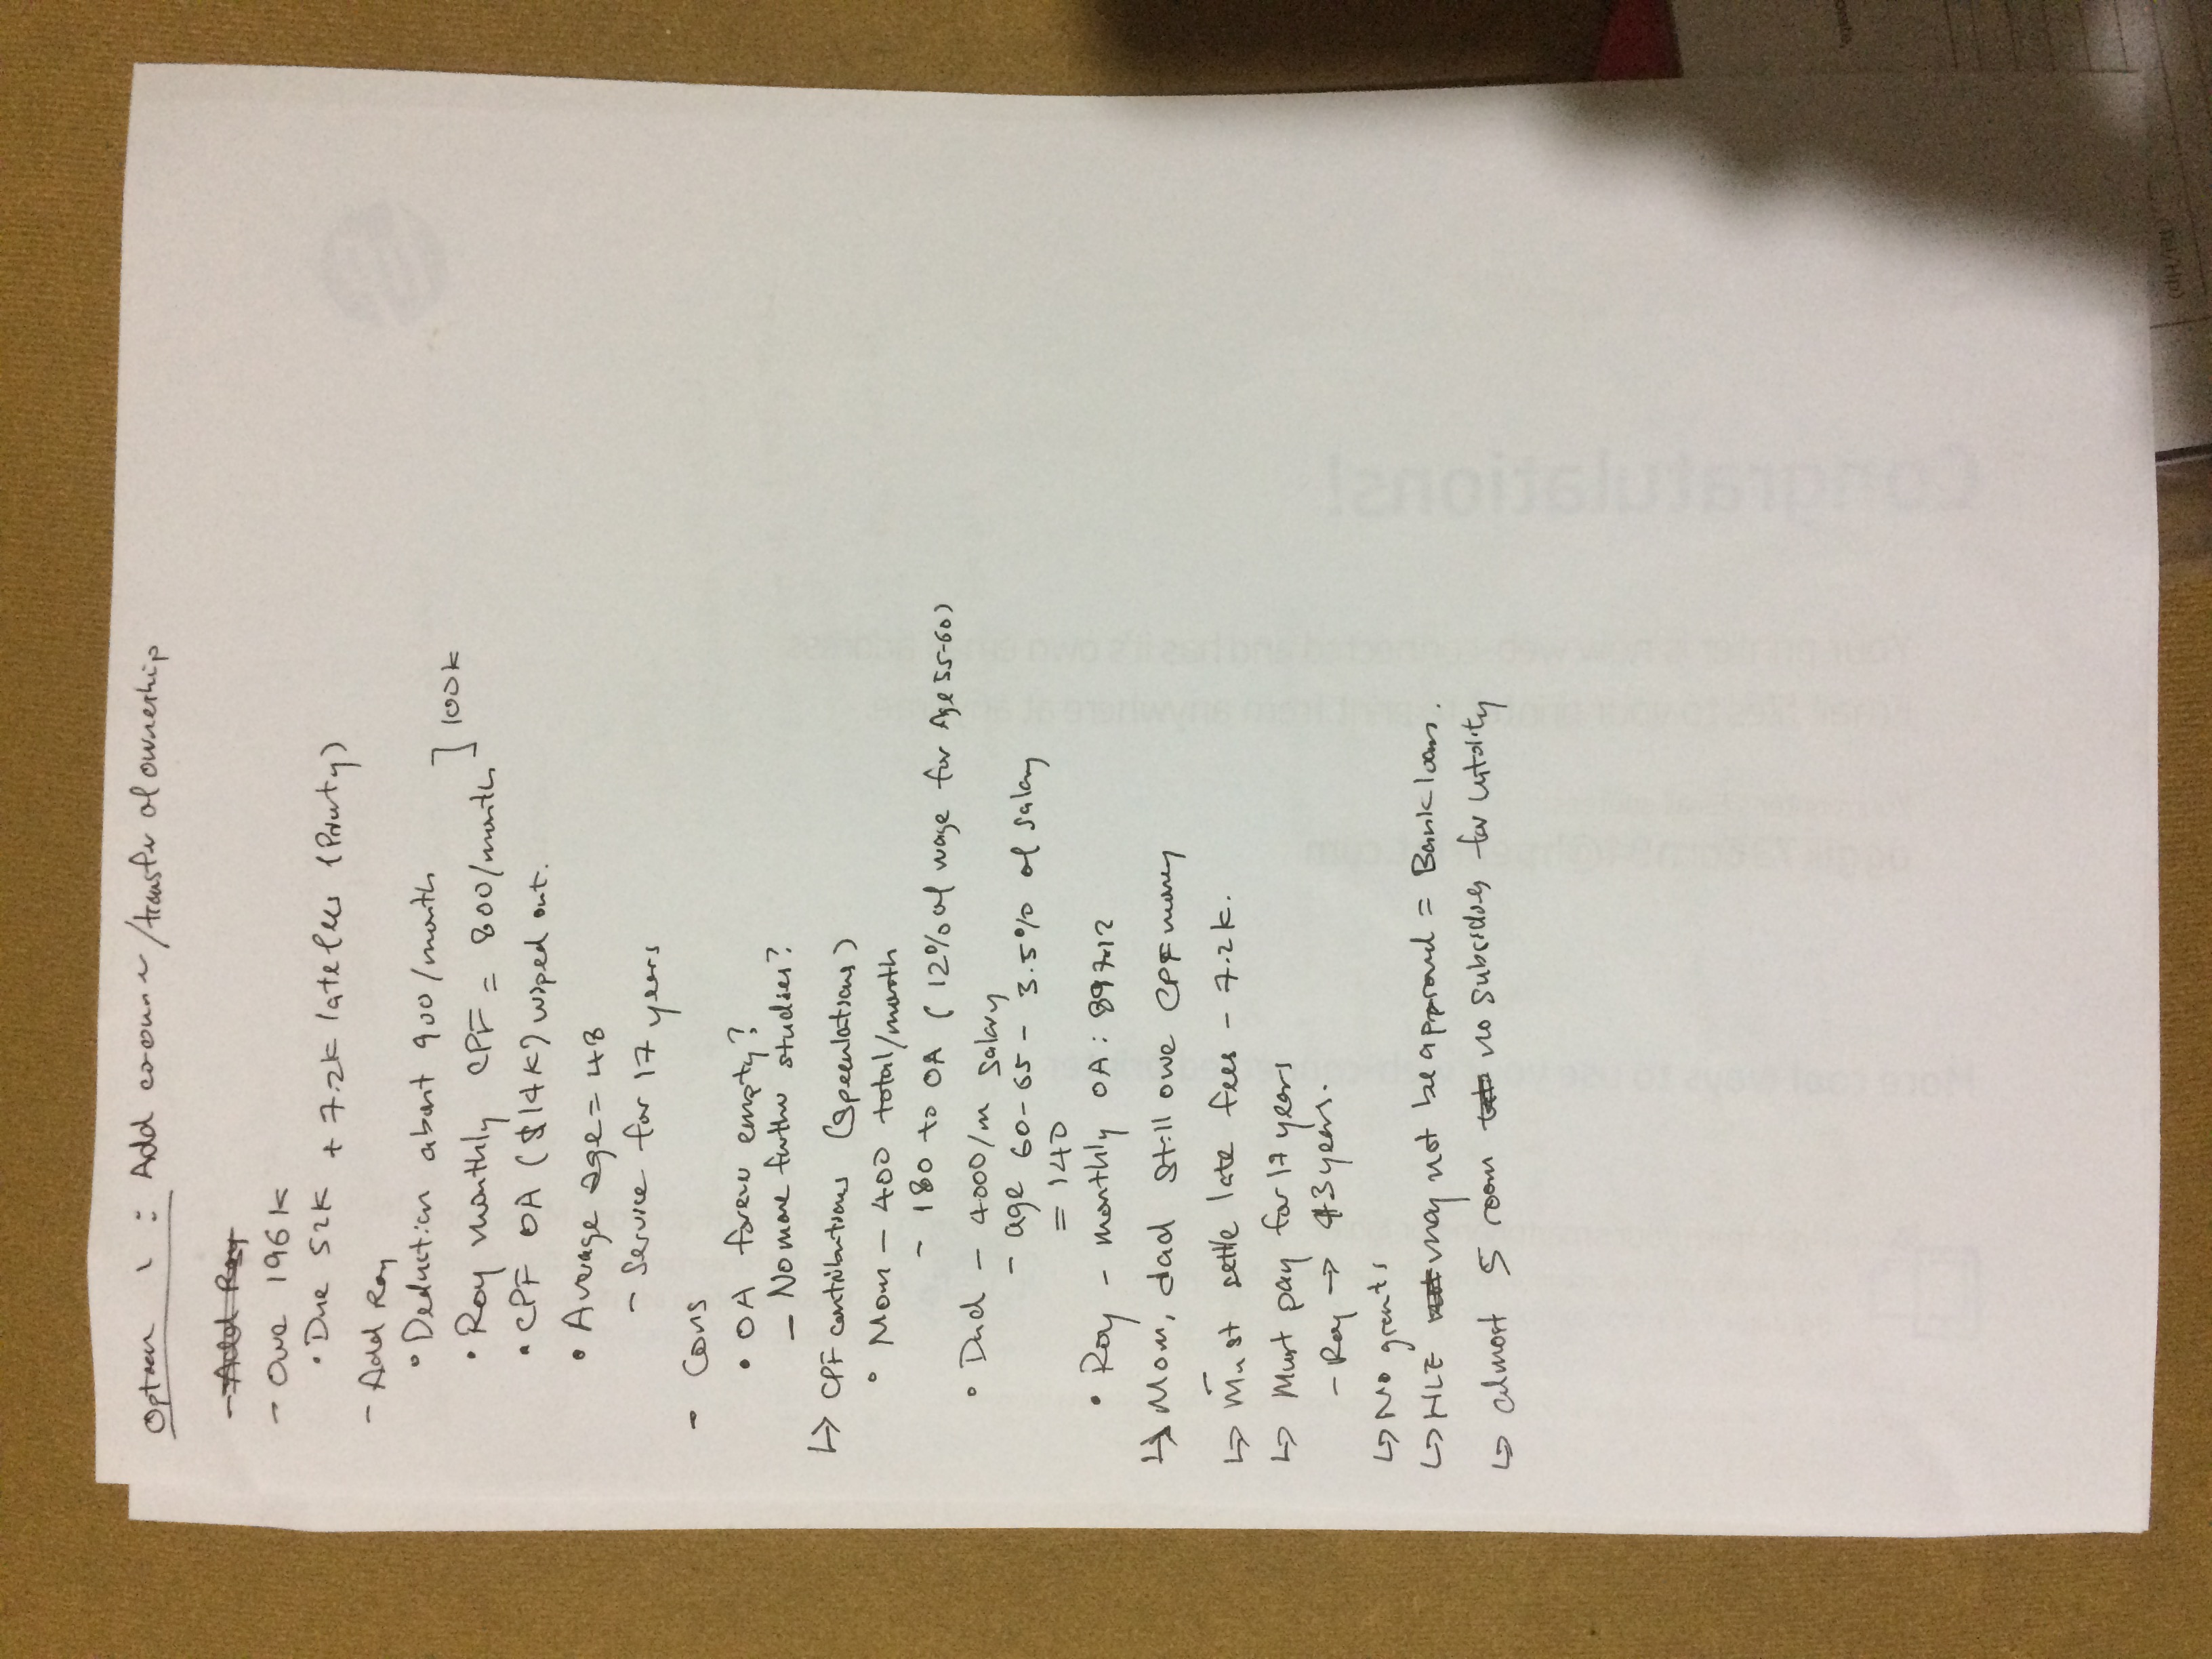 Option 1 : Add co-owner /transfer of ownership
- Add Ray
- Owe 196K
• Due 52K + 7.2K late fees (Priority)
- Add Ray
• Deduction about 900/month
• Ray monthly CPF = 800/month ] 100K
• CPF OA ($14K) wiped out.
• Average age = 48
- Service for 17 years
- Cons
• OA forever empty?
- No more further studies?
↳ CPF contributions (Speculations)
• Mom - 400 total/month
- 180 to OA (12% of wage for Age 55-60)
• Dad - 4000/m salary
- age 60-65 - 3.5% of salary
= 140
• Ray - monthly OA: 897.12
↳ Mom, dad still owe CPF money
↳ Must settle late fees - 7.2K.
↳ Must pay for 17 years
- Ray → 43 years.
↳ No grants
↳ HLE may not be approved = Bank loan.
↳ almost 5 room no subsidies for utility
Congratulations!
Your printer is now web-connected and has it's own email address.